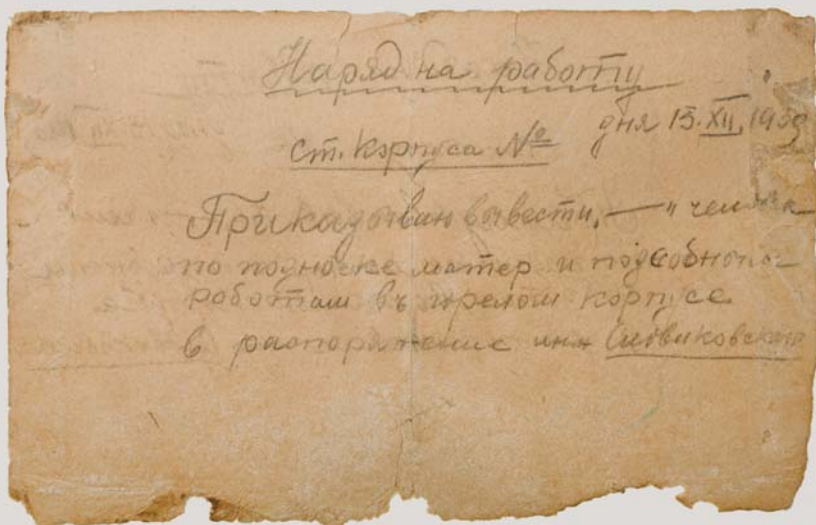 Наряд на работы
дня 15.XII.1939
ст. корпуса №
Приказываю вывести, — " человека
по подноске матер и подсобной
роботам въ корпусе
в распоряжение инж